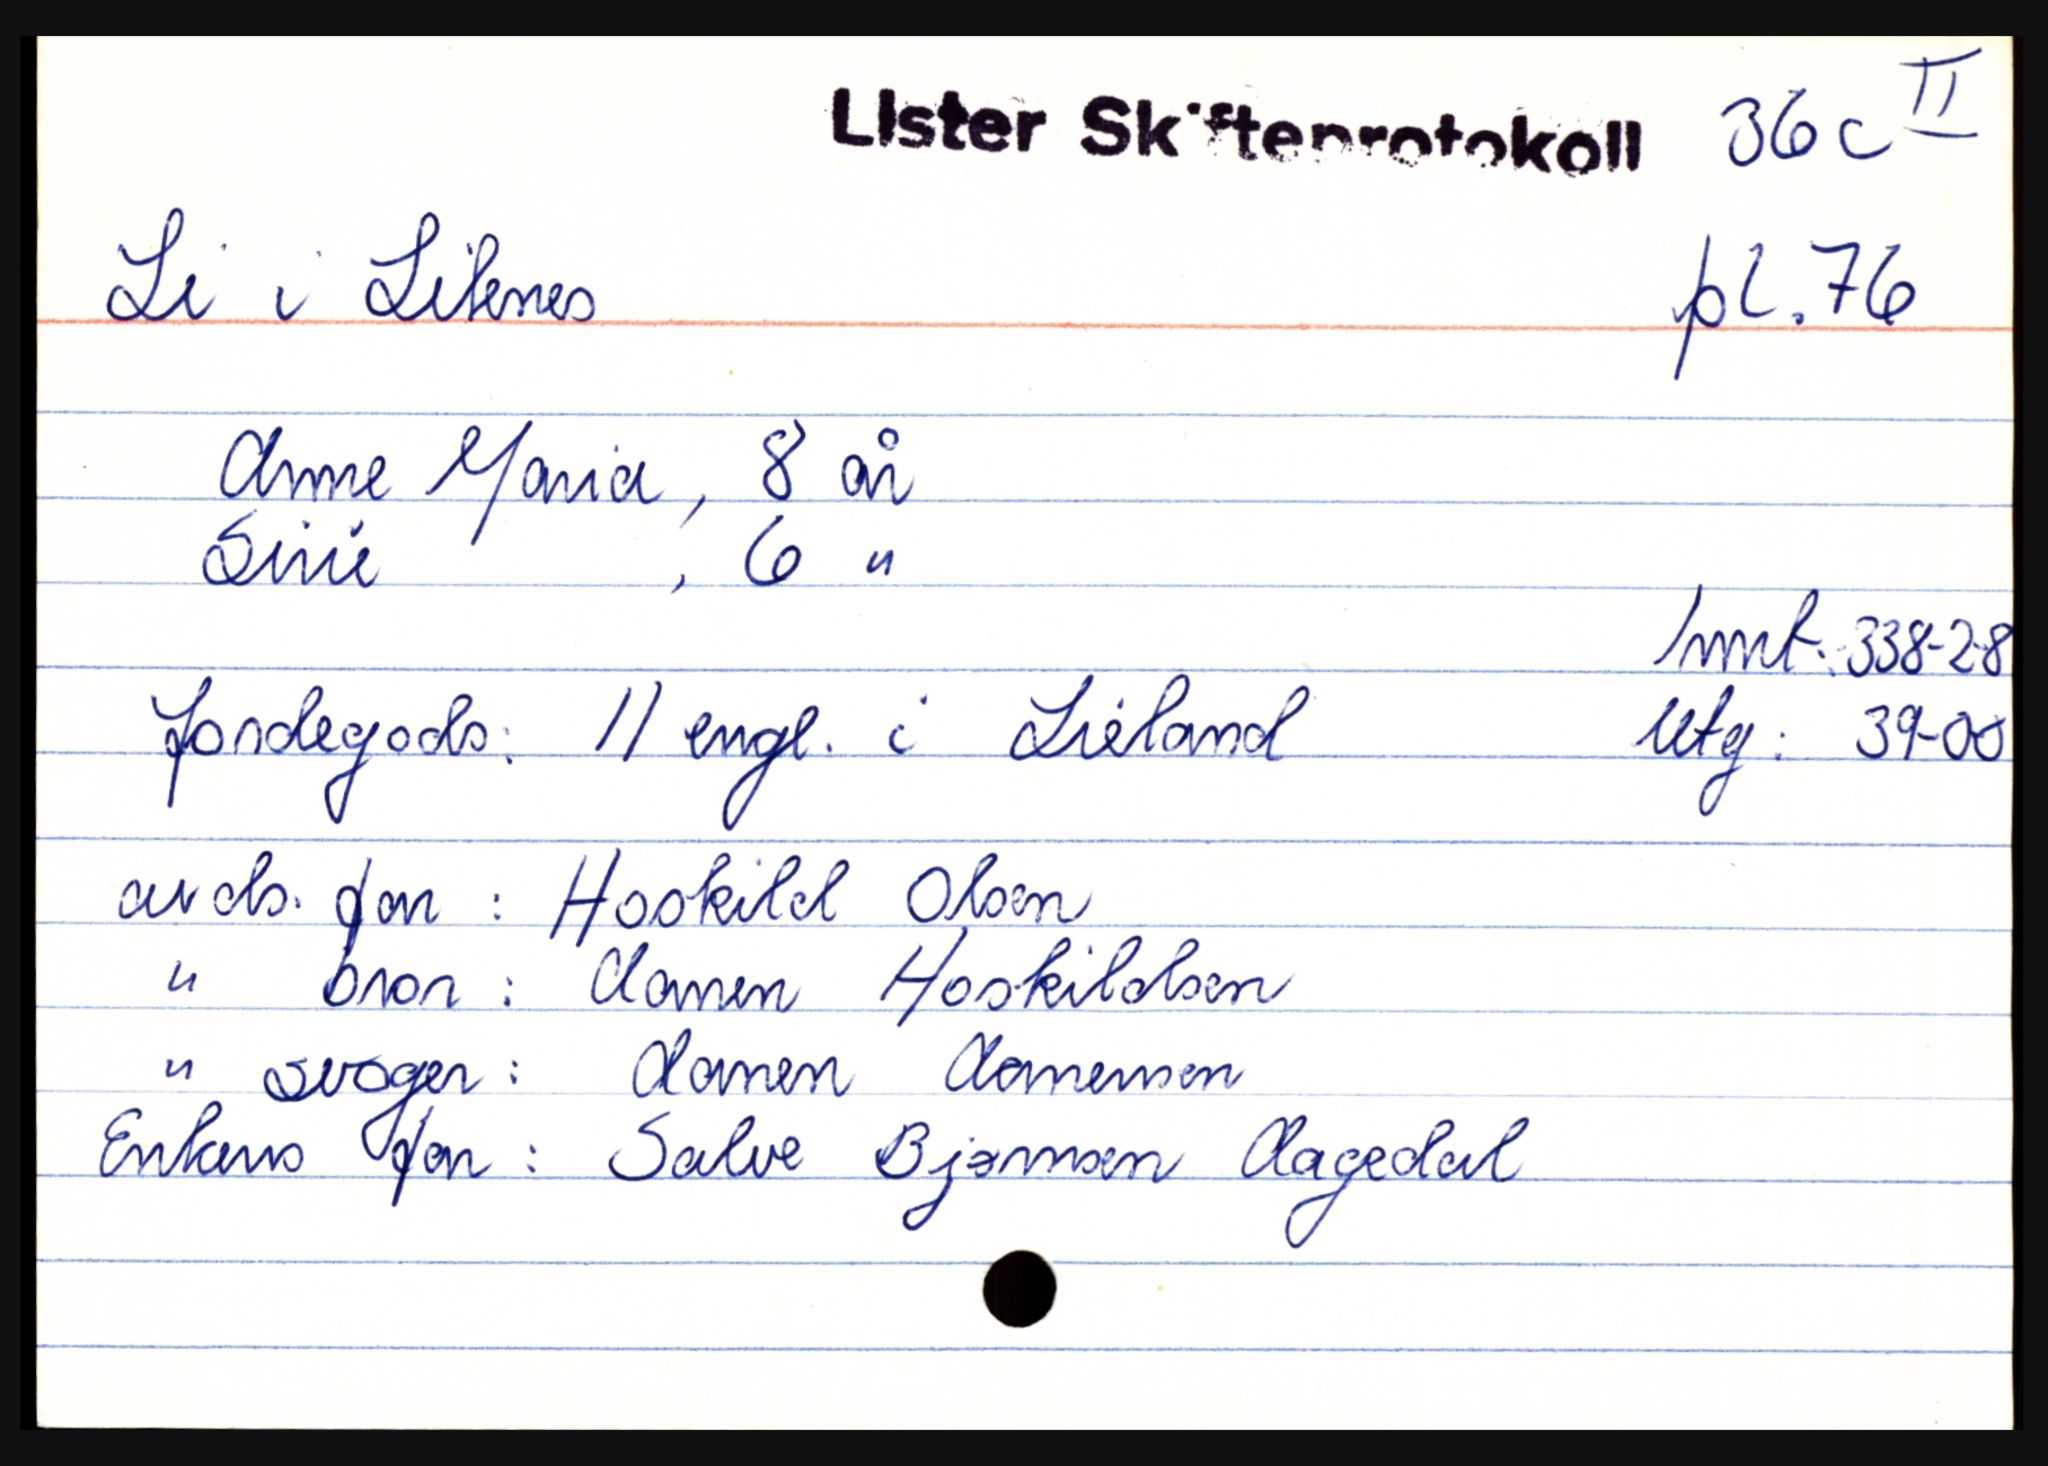 Lister Skifteprotokoll 36 c II
Li i Litenes pl. 76
Anne Maria, 8 år
Sirie, 6 "
Innt.: 338-2-8
Jordegods: 11 engl. i Lieland Utg: 39-00
avds. far: Hoskild Olsen
" bror: Aanen Hoskildsen
" svoger: Aanen Aanensen
Enkens far: Salve Bjørnsen Aagedal